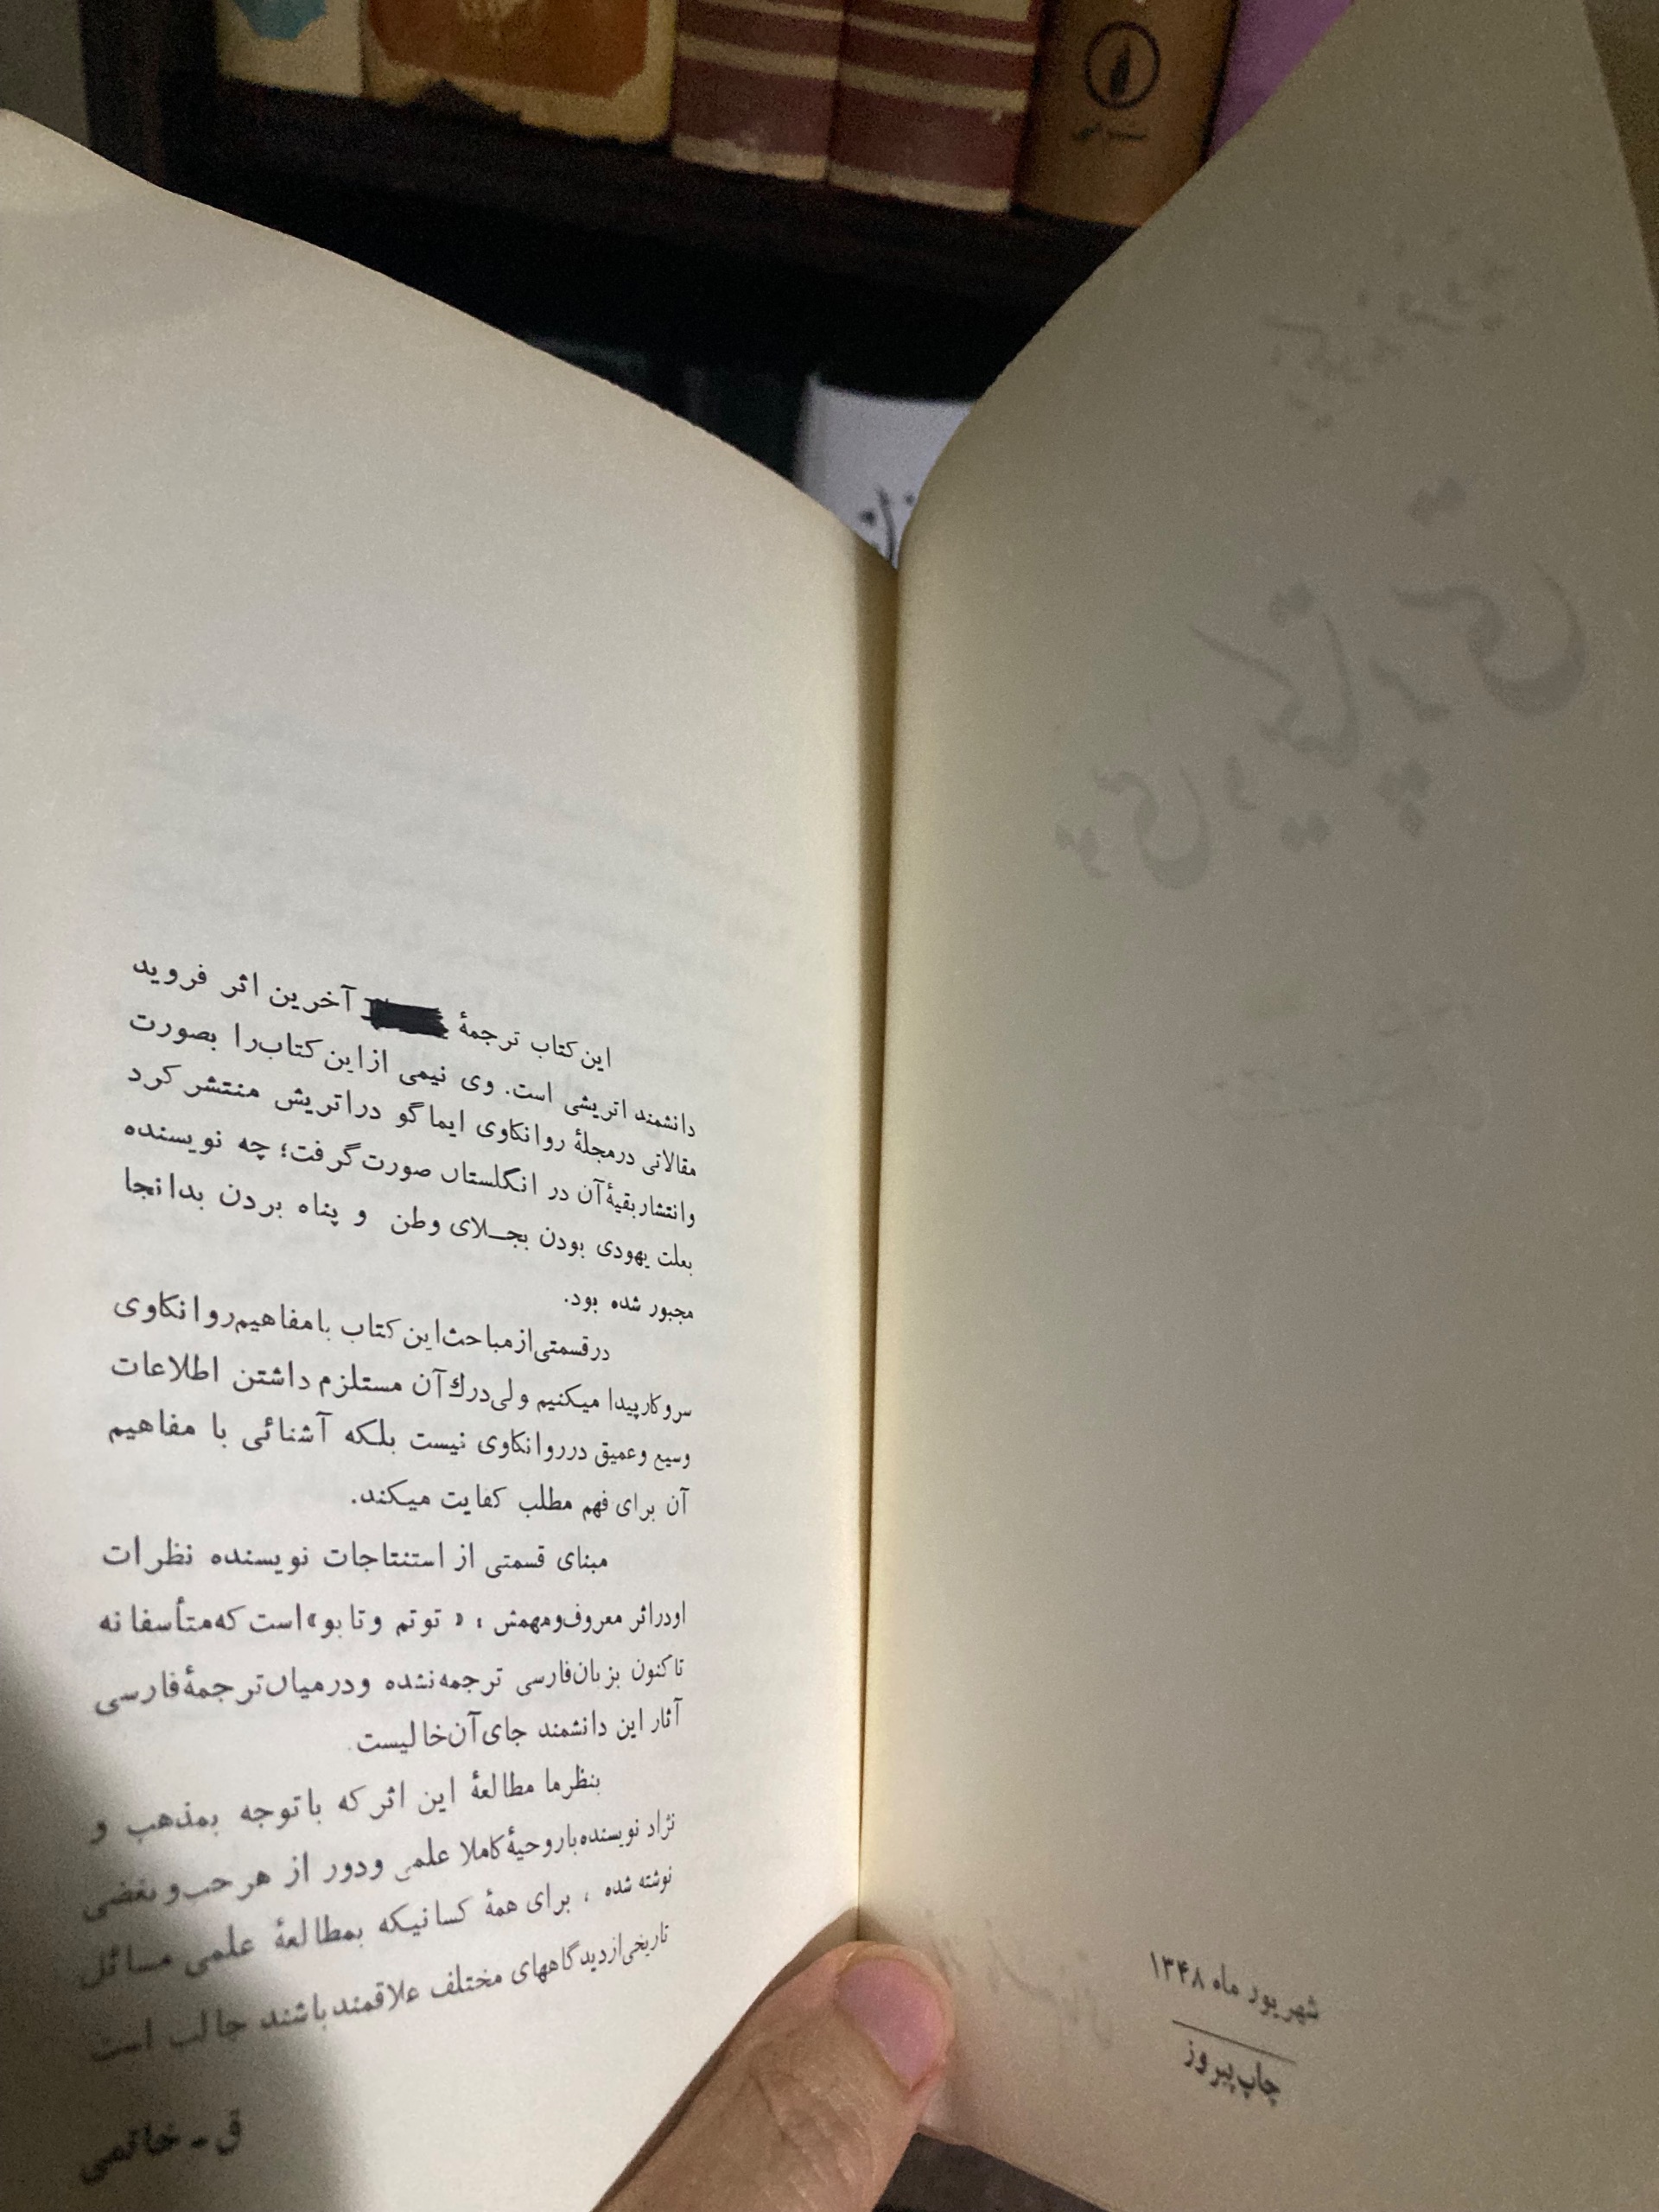 شهریور ماه ۱۳۴۸
چاپ پیروز
این کتاب ترجمهٔ آخرین اثر فروید
دانشمند اتریشی است. وی نیمی از این کتاب را بصورت
مقالاتی در مجلهٔ روانکاوی ایماگو در اتریش منتشر کرد
وانتشار بقیهٔ آن در انگلستان صورت گرفت؛ چه نویسنده
بعلت یهودی بودن بجلای وطن و پناه بردن بدانجا
مجبور شده بود.
در قسمتی از مباحث این کتاب با مفاهیم روانکاوی
سروکار پیدا میکنیم ولی درك آن مستلزم داشتن اطلاعات
وسیع و عمیق در روانکاوی نیست بلکه آشنائی با مفاهیم
آن برای فهم مطلب کفایت میکند.
مبنای قسمتی از استنتاجات نویسنده نظرات
او در اثر معروف و مهمش ، « توتم و تابو» است که متأسفانه
تاکنون بزبان فارسی ترجمه نشده و در میان ترجمهٔ فارسی
آثار این دانشمند جای آن خالیست.
بنظر ما مطالعهٔ این اثر که با توجه بمذهب و
نژاد نویسنده با روحیهٔ کاملا علمی و دور از هر حب و بغضی
نوشته شده ، برای همهٔ کسانیکه بمطالعهٔ علمی مسائل
تاریخی از دیدگاههای مختلف علاقمند باشند جالب است
ق - خاتمی